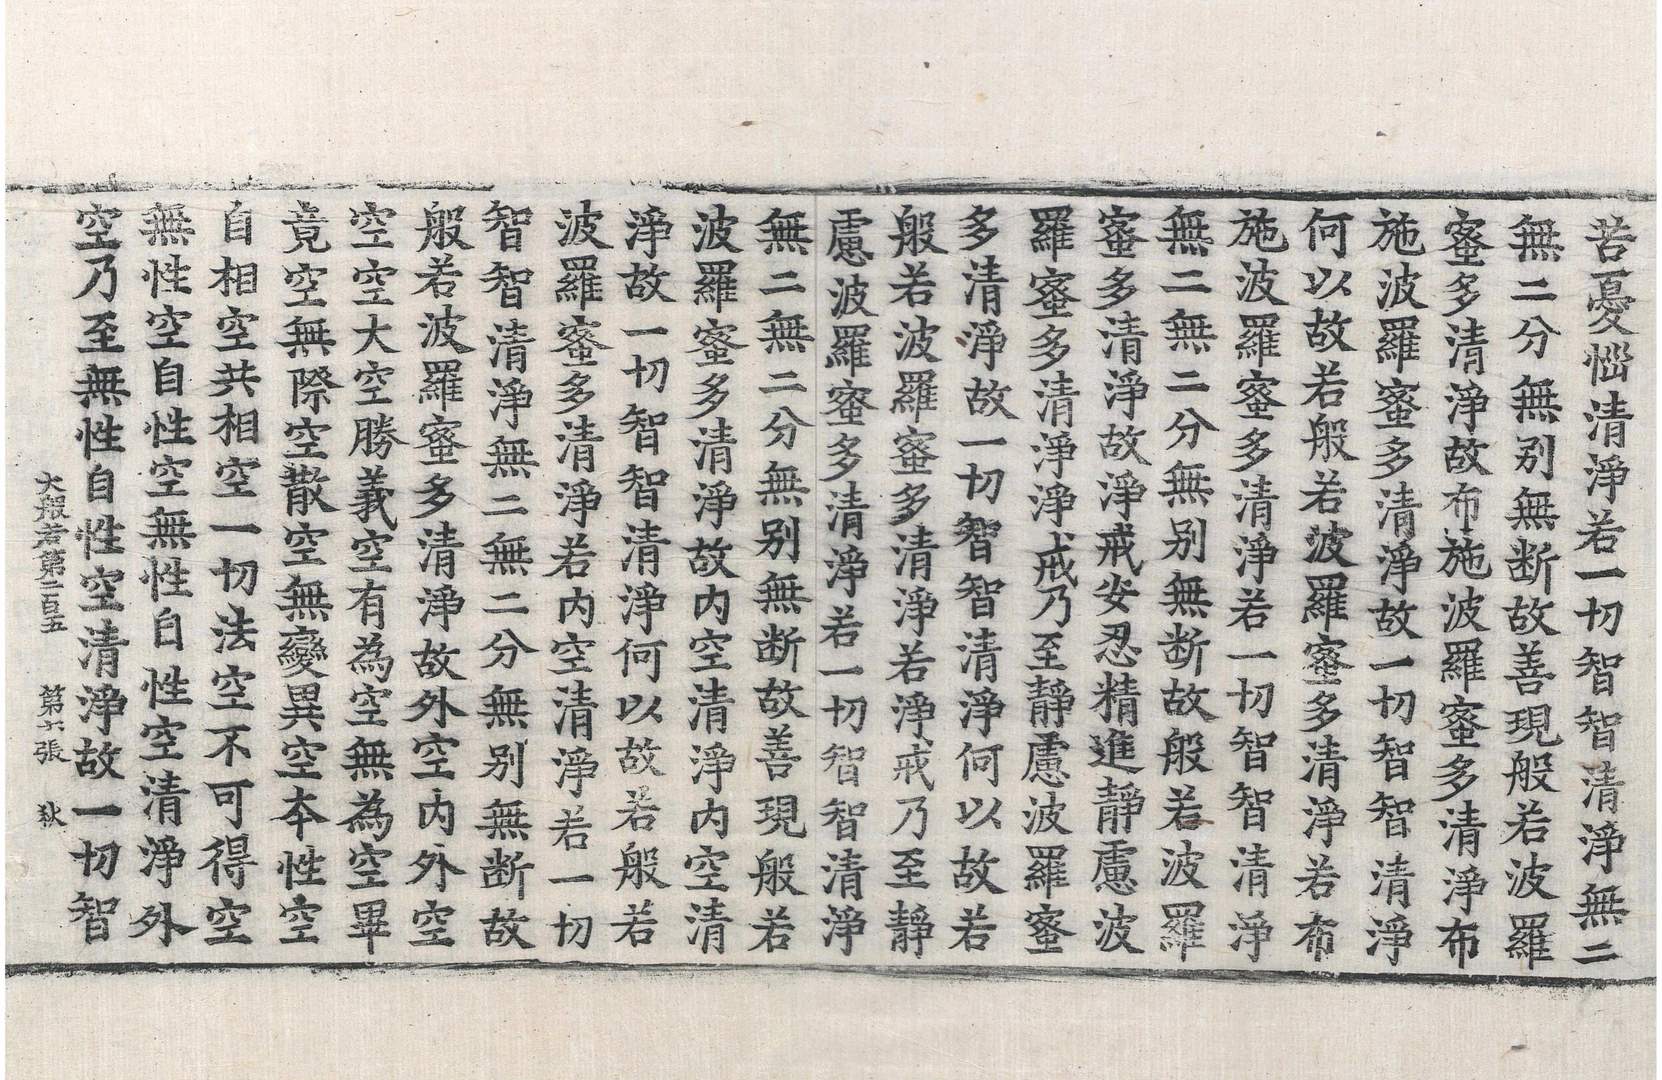 苦憂惱清淨若一切智智清淨無二
無二分無别無断故善現般若波羅
蜜多清淨故布施波羅蜜多清淨布
施波羅蜜多清淨故一切智智清淨
何以故若般若波羅蜜多清淨若布
施波羅蜜多清淨若一切智智清淨
無二無二分無别無断故般若波羅
蜜多清淨故淨戒安忍精進靜慮波
羅蜜多清淨淨戒乃至靜慮波羅蜜
多清淨故一切智智清淨何以故若
般若波羅蜜多清淨若淨戒乃至靜
慮波羅蜜多清淨若一切智智清淨
無二無二分無别無断故善現般若
波羅蜜多清淨故内空清淨内空清
淨故一切智智清淨何以故若般若
波羅蜜多清淨若内空清淨若一切
智智清淨無二無二分無别無断故
般若波羅蜜多清淨故外空内外空
空空大空勝義空有為空無為空畢
竟空無際空散空無變異空本性空
自相空共相空一切法空不可得空
無性空自性空無性自性空清淨外
空乃至無性自性空清淨故一切智
大般若第二百五 第六張 狄